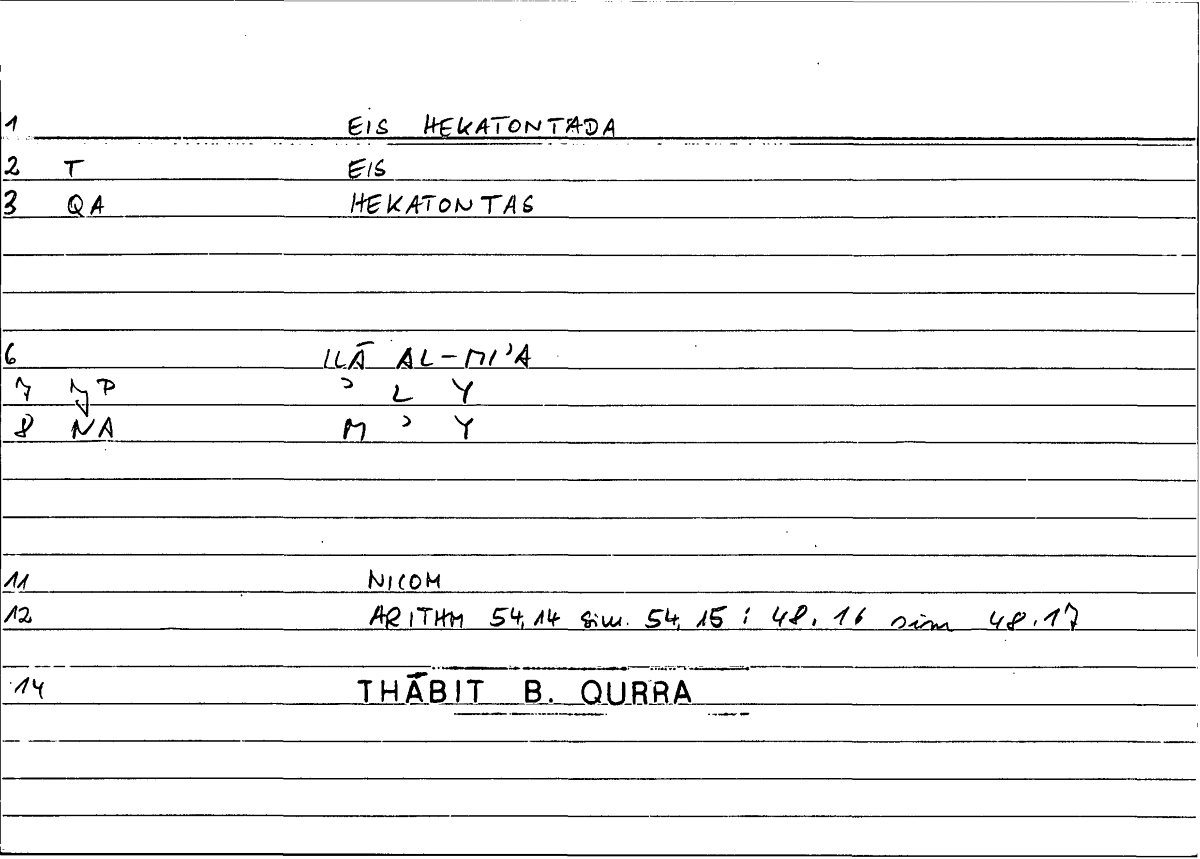 1 EIS HEKATONTADA
2 T EIS
3 QA HEKATONTAS
6 ILĀ AL-MI'A
7 P ʾ L Y
8 NA M ʾ Y
11 NICOM
12 ARITHM 54,14 sim. 54,15 : 48.16 sim 48.17
14 THĀBIT B. QURRA